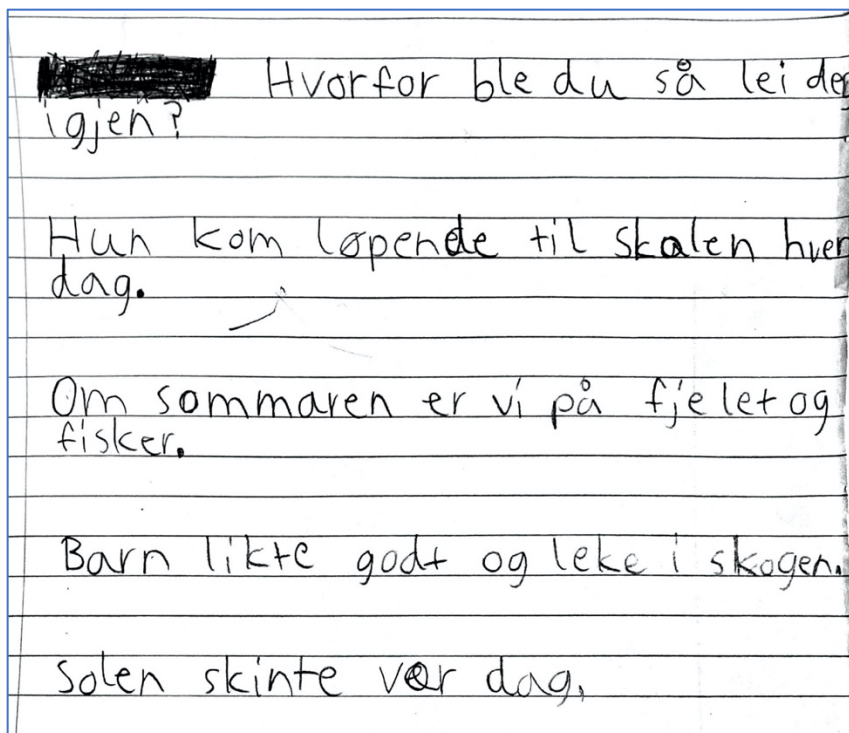 Hvorfor ble du så lei deg
igjen?
Hun kom løpende til skolen hver
dag.
Om sommaren er vi på fjelet og
fisker.
Barn likte godt og leke i skogen.
Solen skinte vær dag.